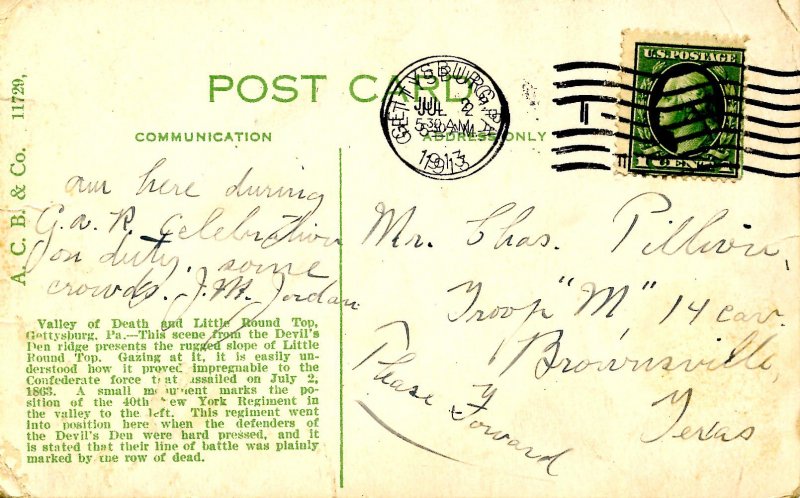 POST CARD
COMMUNICATION
ADDRESS ONLY
A. C. B. & Co. 11729,
GETTYSBURG, PA.
JUL 2
5-30 AM
1913
U.S. POSTAGE
am here during
G.a.R. Celebration
on duty. some
crowds. J.M. Jordan
Valley of Death and Little Round Top,
Gettysburg, Pa.—This scene from the Devil's
Den ridge presents the rugged slope of Little
Round Top. Gazing at it, it is easily un-
derstood how it proved impregnable to the
Confederate force that assailed on July 2,
1863. A small monument marks the po-
sition of the 40th New York Regiment in
the valley to the left. This regiment went
into position here when the defenders of
the Devil's Den were hard pressed, and it
is stated that their line of battle was plainly
marked by the row of dead.
Mr. Chas.
Troop "M" 14 cav.
Brownsville,
Texas
Please Forward